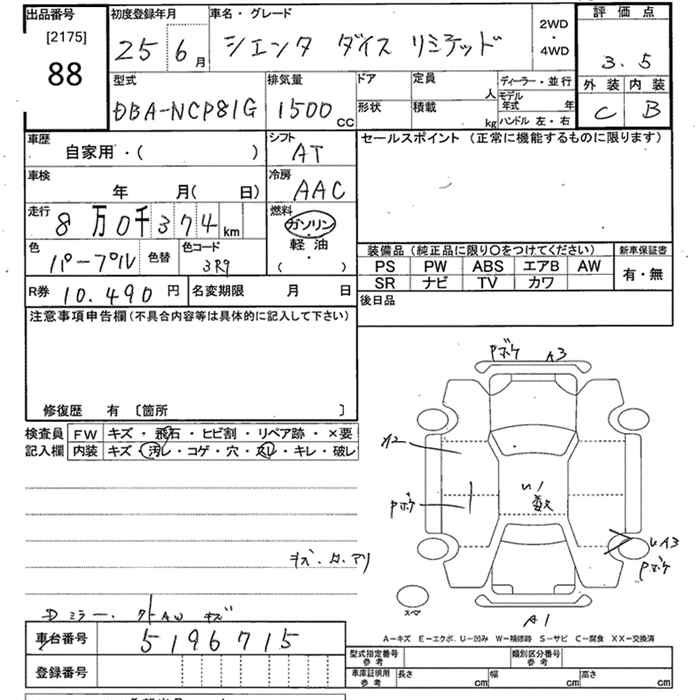 出品番号 初度登録年月 車名・グレード 評価点
[2175] 88 25 6月 シエンタ ダイス リミテッド 2WD・4WD 3.5
型式 排気量 ドア 定員 人 ディーラー・並行 外装 内装
DBA-NCP81G 1500cc 形状 積載 kg モデル年式 年 ハンドル 左・右 C B
車歴 シフト セールスポイント (正常に機能するものに限ります)
自家用・( ) AT
車検 年 月( 日) 冷房 AAC
走行 8万0千374km 燃料 ガソリン・軽油
色 パープル 色替 色コード 3R9 ( )
装備品 (純正品に限り○をつけてください) 新車保証書
PS PW ABS エアB AW 有・無
SR ナビ TV カワ
R券 10.490円 名変期限 月 日 後日品
注意事項申告欄 (不具合内容等は具体的に記入して下さい)
修復歴 有 〔箇所 〕
検査員 FW キズ・飛石・ヒビ割・リペア跡・×要
記入欄 内装 キズ・汚レ・コゲ・穴・スレ・キレ・破レ
Pボケ A3
A2
U1
Pボケ
UA3
Pボケ
キズ.
Dミラー.
AW キズ
スペア
A1
車台番号 5196715
A-キズ E-エクボ. U-凹み W-補修跡 S-サビ C-腐食 XX-交換済
登録番号
型式指定番号 参考 類別区分番号 参考
車庫証明用 参考 長さ cm 幅 cm 高さ cm